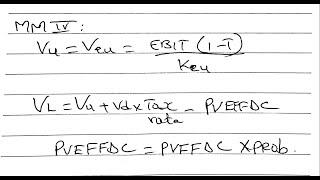 MM IV :
Vu = Veu = EBIT (1-T)
Keu
VL = Vu + Vd x Tax - PVEFFDC
rate
PVEFFDC = PVEFFDC X PROB.